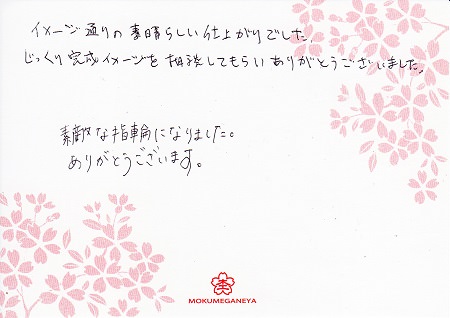 イメージ通りの素晴らしい仕上がりでした。
じっくり完成イメージを相談してもらいありがとうございました。
素敵な指輪になりました。
ありがとうございます。
MOKUMEGANEYA